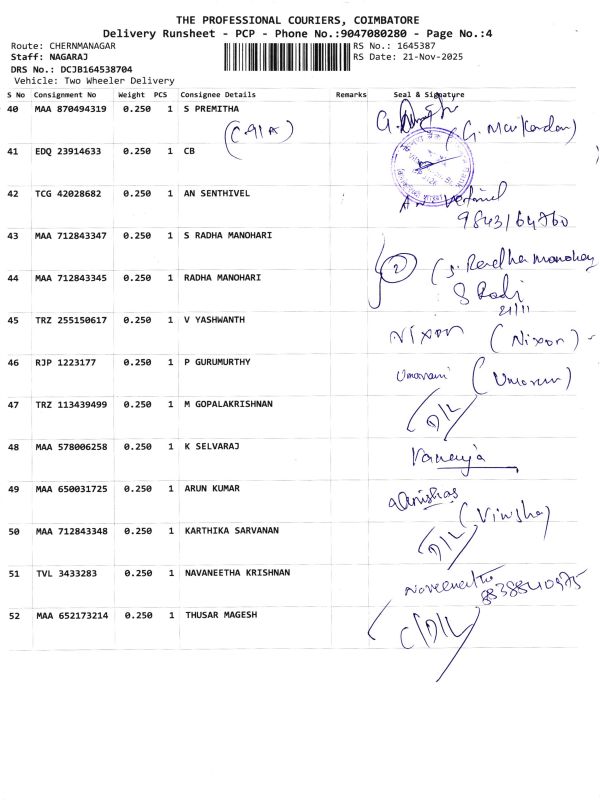 THE PROFESSIONAL COURIERS, COIMBATORE
Delivery Runsheet - PCP - Phone No.:9047080280 - Page No.:4
Route: CHERNMANAGAR
RS No.: 1645387
Staff: NAGARAJ
RS Date: 21-Nov-2025
DRS No.: DCJB164538704
Vehicle: Two Wheeler Delivery
S No Consignment No Weight PCS Consignee Details Remarks Seal & Signature
40 MAA 870494319 0.250 1 S PREMITHA
41 EDQ 23914633 0.250 1 CB
42 TCG 42028682 0.250 1 AN SENTHIVEL
43 MAA 712843347 0.250 1 S RADHA MANOHARI
(2) (S. Radha Manohay
44 MAA 712843345 0.250 1 RADHA MANOHARI
21/11
45 TRZ 255150617 0.250 1 V YASHWANTH
Nixon (Nixon)
46 RJP 1223177 0.250 1 P GURUMURTHY
47 TRZ 113439499 0.250 1 M GOPALAKRISHNAN
D/L
48 MAA 578006258 0.250 1 K SELVARAJ
49 MAA 650031725 0.250 1 ARUN KUMAR
50 MAA 712843348 0.250 1 KARTHIKA SARVANAN
D/L
51 TVL 3433283 0.250 1 NAVANEETHA KRISHNAN
52 MAA 652173214 0.250 1 THUSAR MAGESH
C/D/L